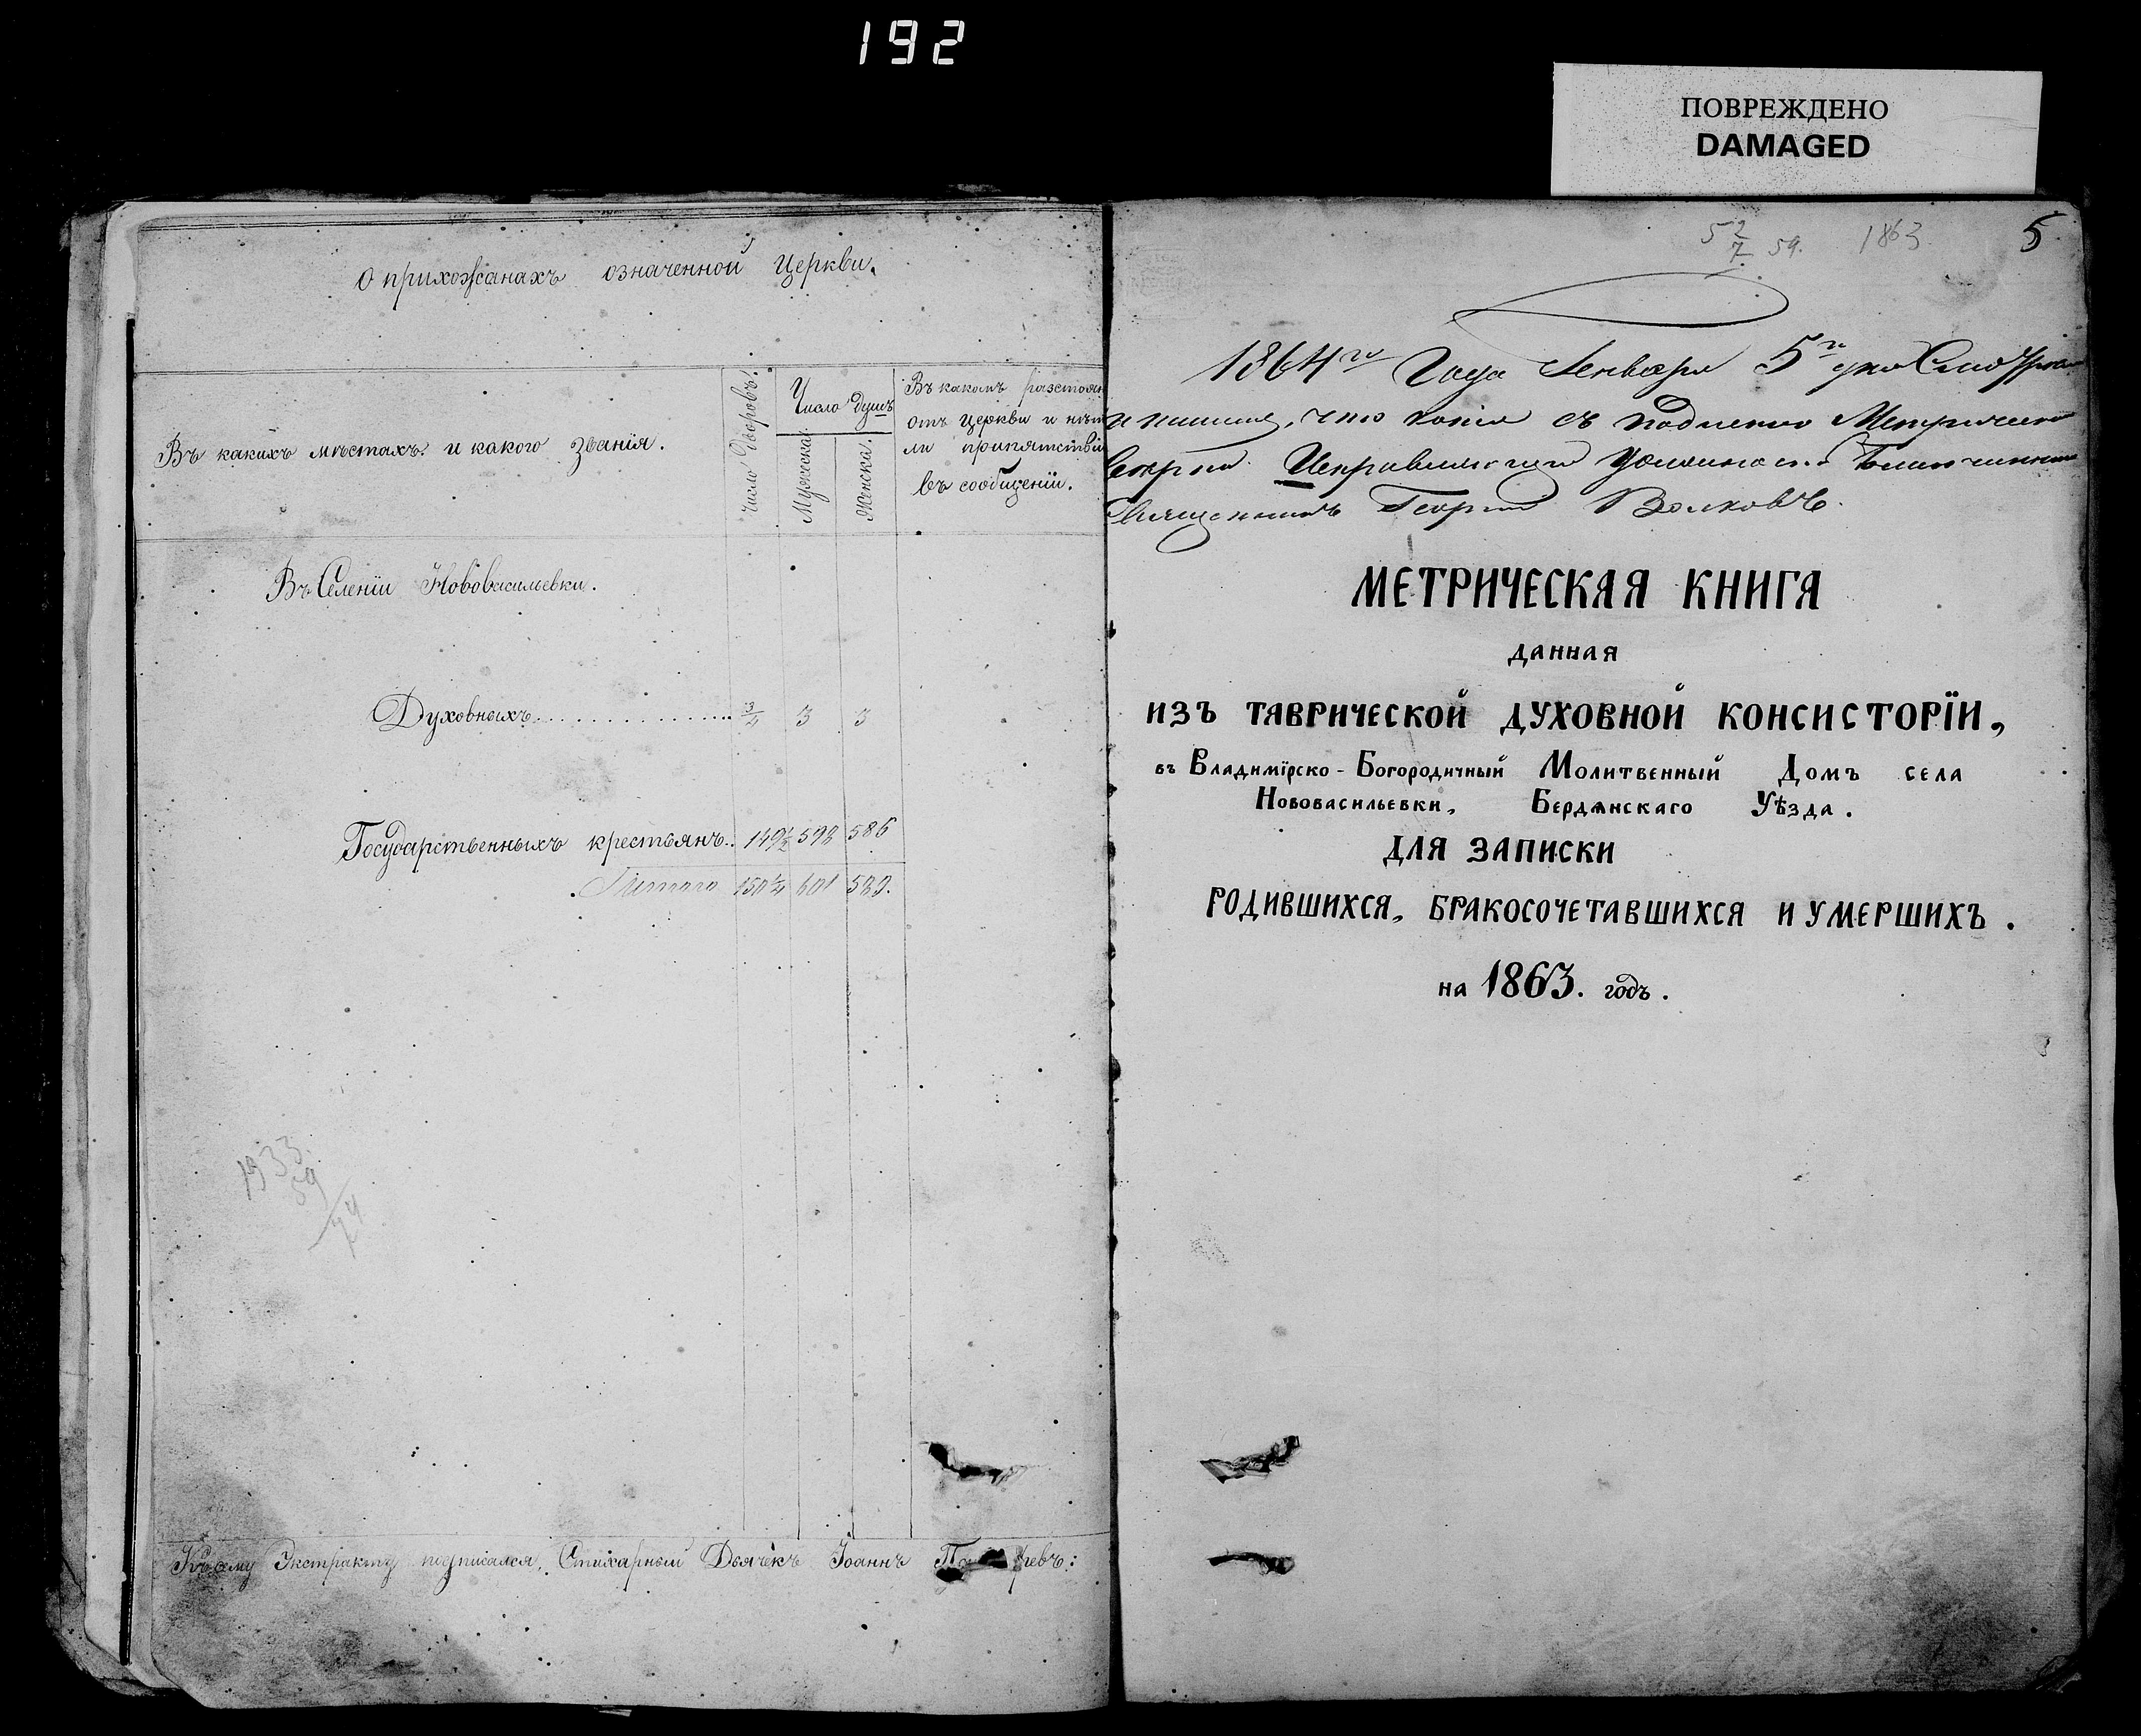 192
ПОВРЕЖДЕНО
DAMAGED
О прихожанахъ означенной Церкви.
Въ какихъ мѣстахъ и какого званія.
Число дворовъ.
Число душъ
Мужеска.
Женска.
Въ какомъ разстоян
отъ церкви и нѣт
ли препятствій
въ сообщеніи.
Въ Селеніи Нововасильевки.
Духовныхъ 3/4 3 3
Государственныхъ крестьянъ.. 149½ 598 586
Итого 150¼ 601 589.
1933
59
Къ сему Экстракту подписался, Стихарный Дьячекъ Іоаннъ
5 2/7 59. 1863 5
1864го Года Генваря 5го дня
что копія съ Метрическ
Священникъ Георгій Волковъ.
МЕТРИЧЕСКАЯ КНИГА
данная
ИЗЪ ТАВРИЧЕСКОЙ ДУХОВНОЙ КОНСИСТОРІИ,
въ Владимірско-Богородичный Молитвенный Домъ села
Нововасильевки, Бердянскаго Уѣзда.
ДЛЯ ЗАПИСКИ
РОДИВШИХСЯ, БРАКОСОЧЕТАВШИХСЯ И УМЕРШИХЪ.
на 1863. годъ.